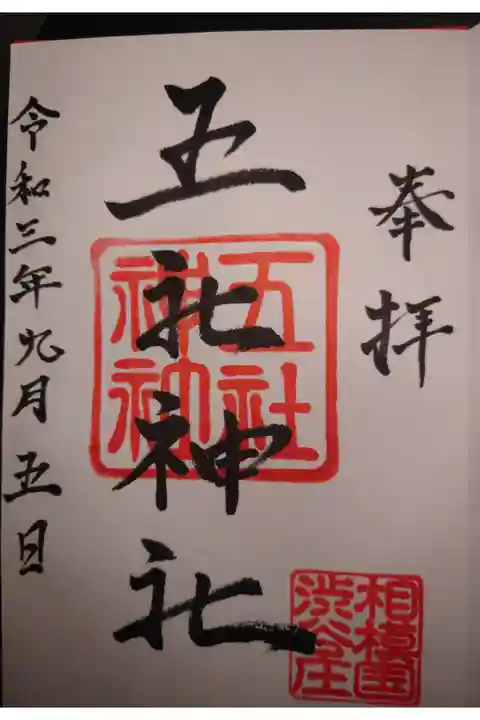 奉拝
五社神社
五社神社
相模国
渋谷庄
令和三年九月五日